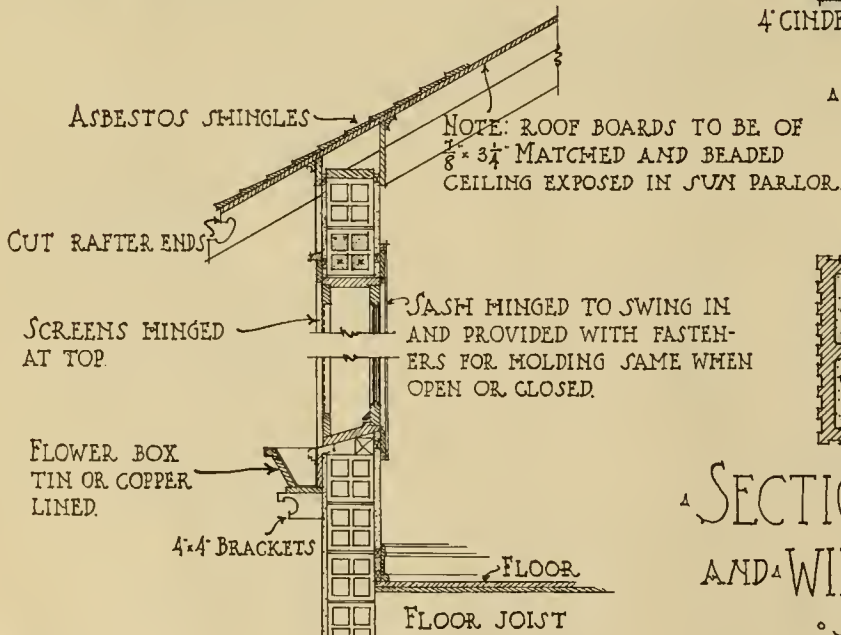 4" CINDE
ASBESTOS SHINGLES
NOTE: ROOF BOARDS TO BE OF
7/8" x 3 1/4" MATCHED AND BEADED
CEILING EXPOSED IN SUN PARLOR.
CUT RAFTER ENDS
SCREENS HINGED
AT TOP.
SASH HINGED TO SWING IN
AND PROVIDED WITH FASTEN-
ERS FOR HOLDING SAME WHEN
OPEN OR CLOSED.
FLOWER BOX
TIN OR COPPER
LINED.
4"x4" BRACKETS
FLOOR
FLOOR JOIST
SECTIO
AND WI